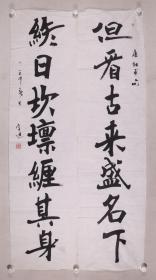 但看古来盛名下
终日坎壈缠其身